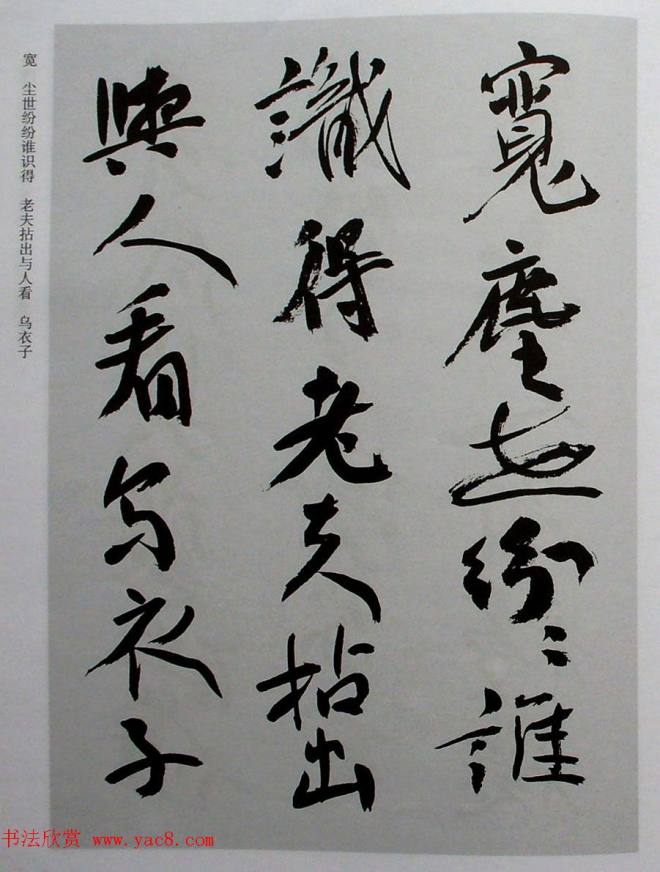 寬塵世紛〻誰
識得老夫拈出
與人看烏衣子
宽 尘世纷纷谁识得 老夫拈出与人看 乌衣子
书法欣赏 www.yac8.com